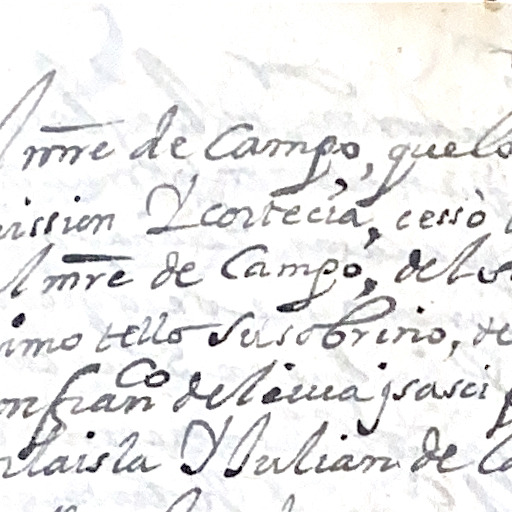 l mre de Campo, quelo
ission Y cortecia, cessò
l mre de Campo, del s
imo tello susobrino, de
on franco deleiua jsasi
laisla Y Julian de